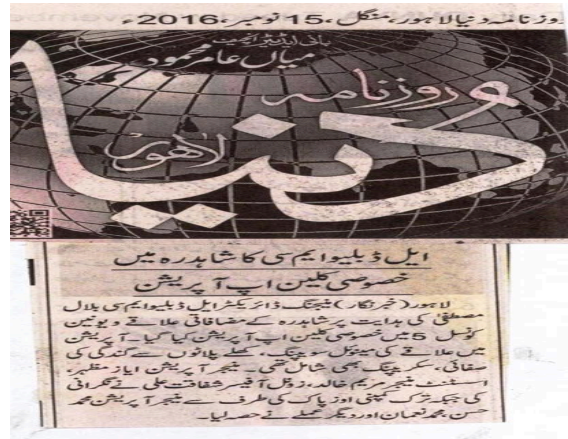 روزنامہ دنیا لاہور، منگل، 15 نومبر، 2016ء
بانی ایڈیٹر انچیف
میاں عامر محمود
روزنامہ
دنیا
لاہور
ایل ڈبلیو ایم سی کا شاہدرہ میں
خصوصی کلین اپ آپریشن
لاہور (خبر نگار) مینجنگ ڈائریکٹر ایل ڈبلیو ایم سی بلال
مصطفیٰ کی ہدایت پر شاہدرہ کے مضافاتی علاقے و یونین
کونسل 5 میں خصوصی کلین اپ آپریشن کیا گیا۔ آپریشن
میں علاقے کی مینوئل سویپنگ، کھلے پلاٹوں سے گندگی کی
صفائی، سکریپنگ بھی شامل تھی۔ منیجر آپریشن ایاز مظہر،
اسسٹنٹ منیجر مریم خالد، زونل آفیسر شفاقت علی نے نگرانی
کی جبکہ ترک کمپنی اوزپاک کی طرف سے منیجر آپریشن محمد
حسن، محمد نعمان اور دیگر عملے نے حصہ لیا۔